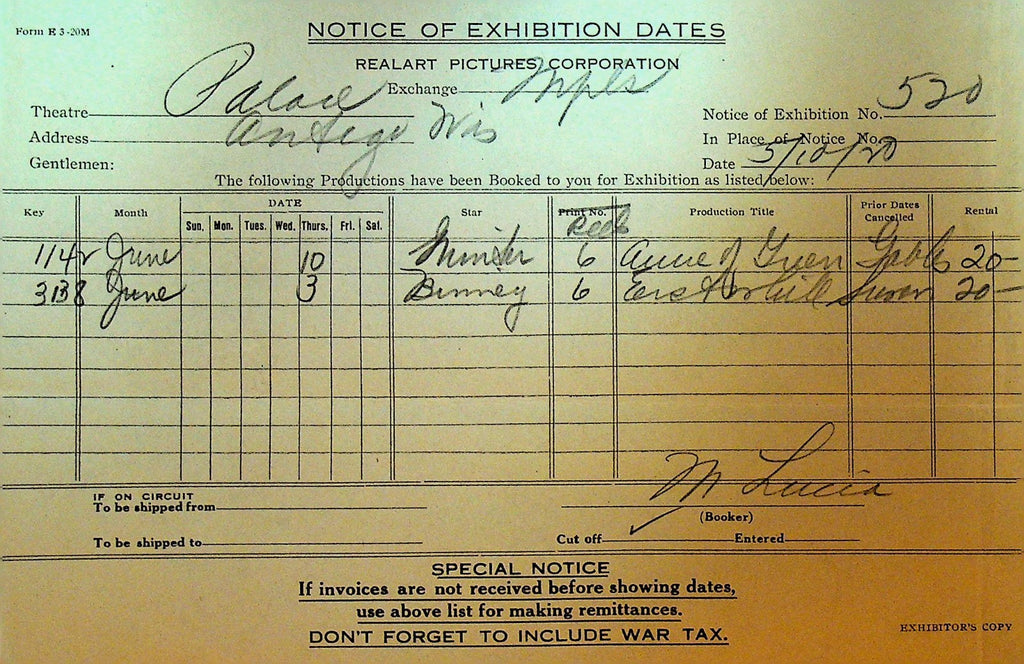 Form E 3-20M
NOTICE OF EXHIBITION DATES
REALART PICTURES CORPORATION
Exchange Mpls
Theatre Palace
Address Antigo Wis
Notice of Exhibition No. 520
In Place of Notice No.
Date 5/10/20
Gentlemen:
The following Productions have been Booked to you for Exhibition as listed below:
Key Month DATE Star Print No. Production Title Prior Dates Cancelled Rental
Sun. Mon. Tues. Wed. Thurs. Fri. Sat.
Reels
June 10 Minter 6 Anne of Green Gables 20-
3138 June 3 Binney 6 Erstwhile Susan 20-
M Lucia
IF ON CIRCUIT
To be shipped from
(Booker)
To be shipped to
Cut off Entered
SPECIAL NOTICE
If invoices are not received before showing dates,
use above list for making remittances.
DON'T FORGET TO INCLUDE WAR TAX.
EXHIBITOR'S COPY